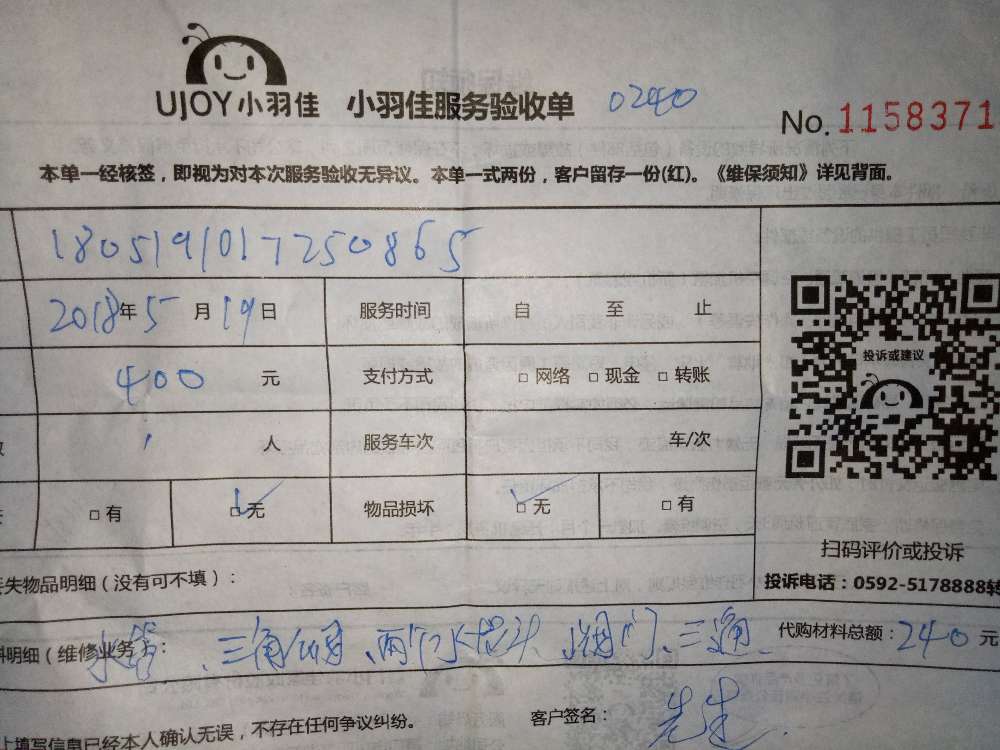 UJOY小羽佳 小羽佳服务验收单 0240
No. 1158371
本单一经核签，即视为对本次服务验收无异议。本单一式两份，客户留存一份(红)。《维保须知》详见背面。
1805191017250865
2018年5月19日 服务时间 自 至 止
400 元 支付方式 □网络 □现金 □转账
1 人 服务车次 车/次
□有 □无 物品损坏 □无 □有
投诉或建议
扫码评价或投诉
失物品明细（没有可不填）：
投诉电话：0592-5178888转
料明细（维修业务）：水管、三角阀、两个水龙头、阀门、三通 代购材料总额：240元
上填写信息已经本人确认无误，不存在任何争议纠纷。 客户签名： 先生